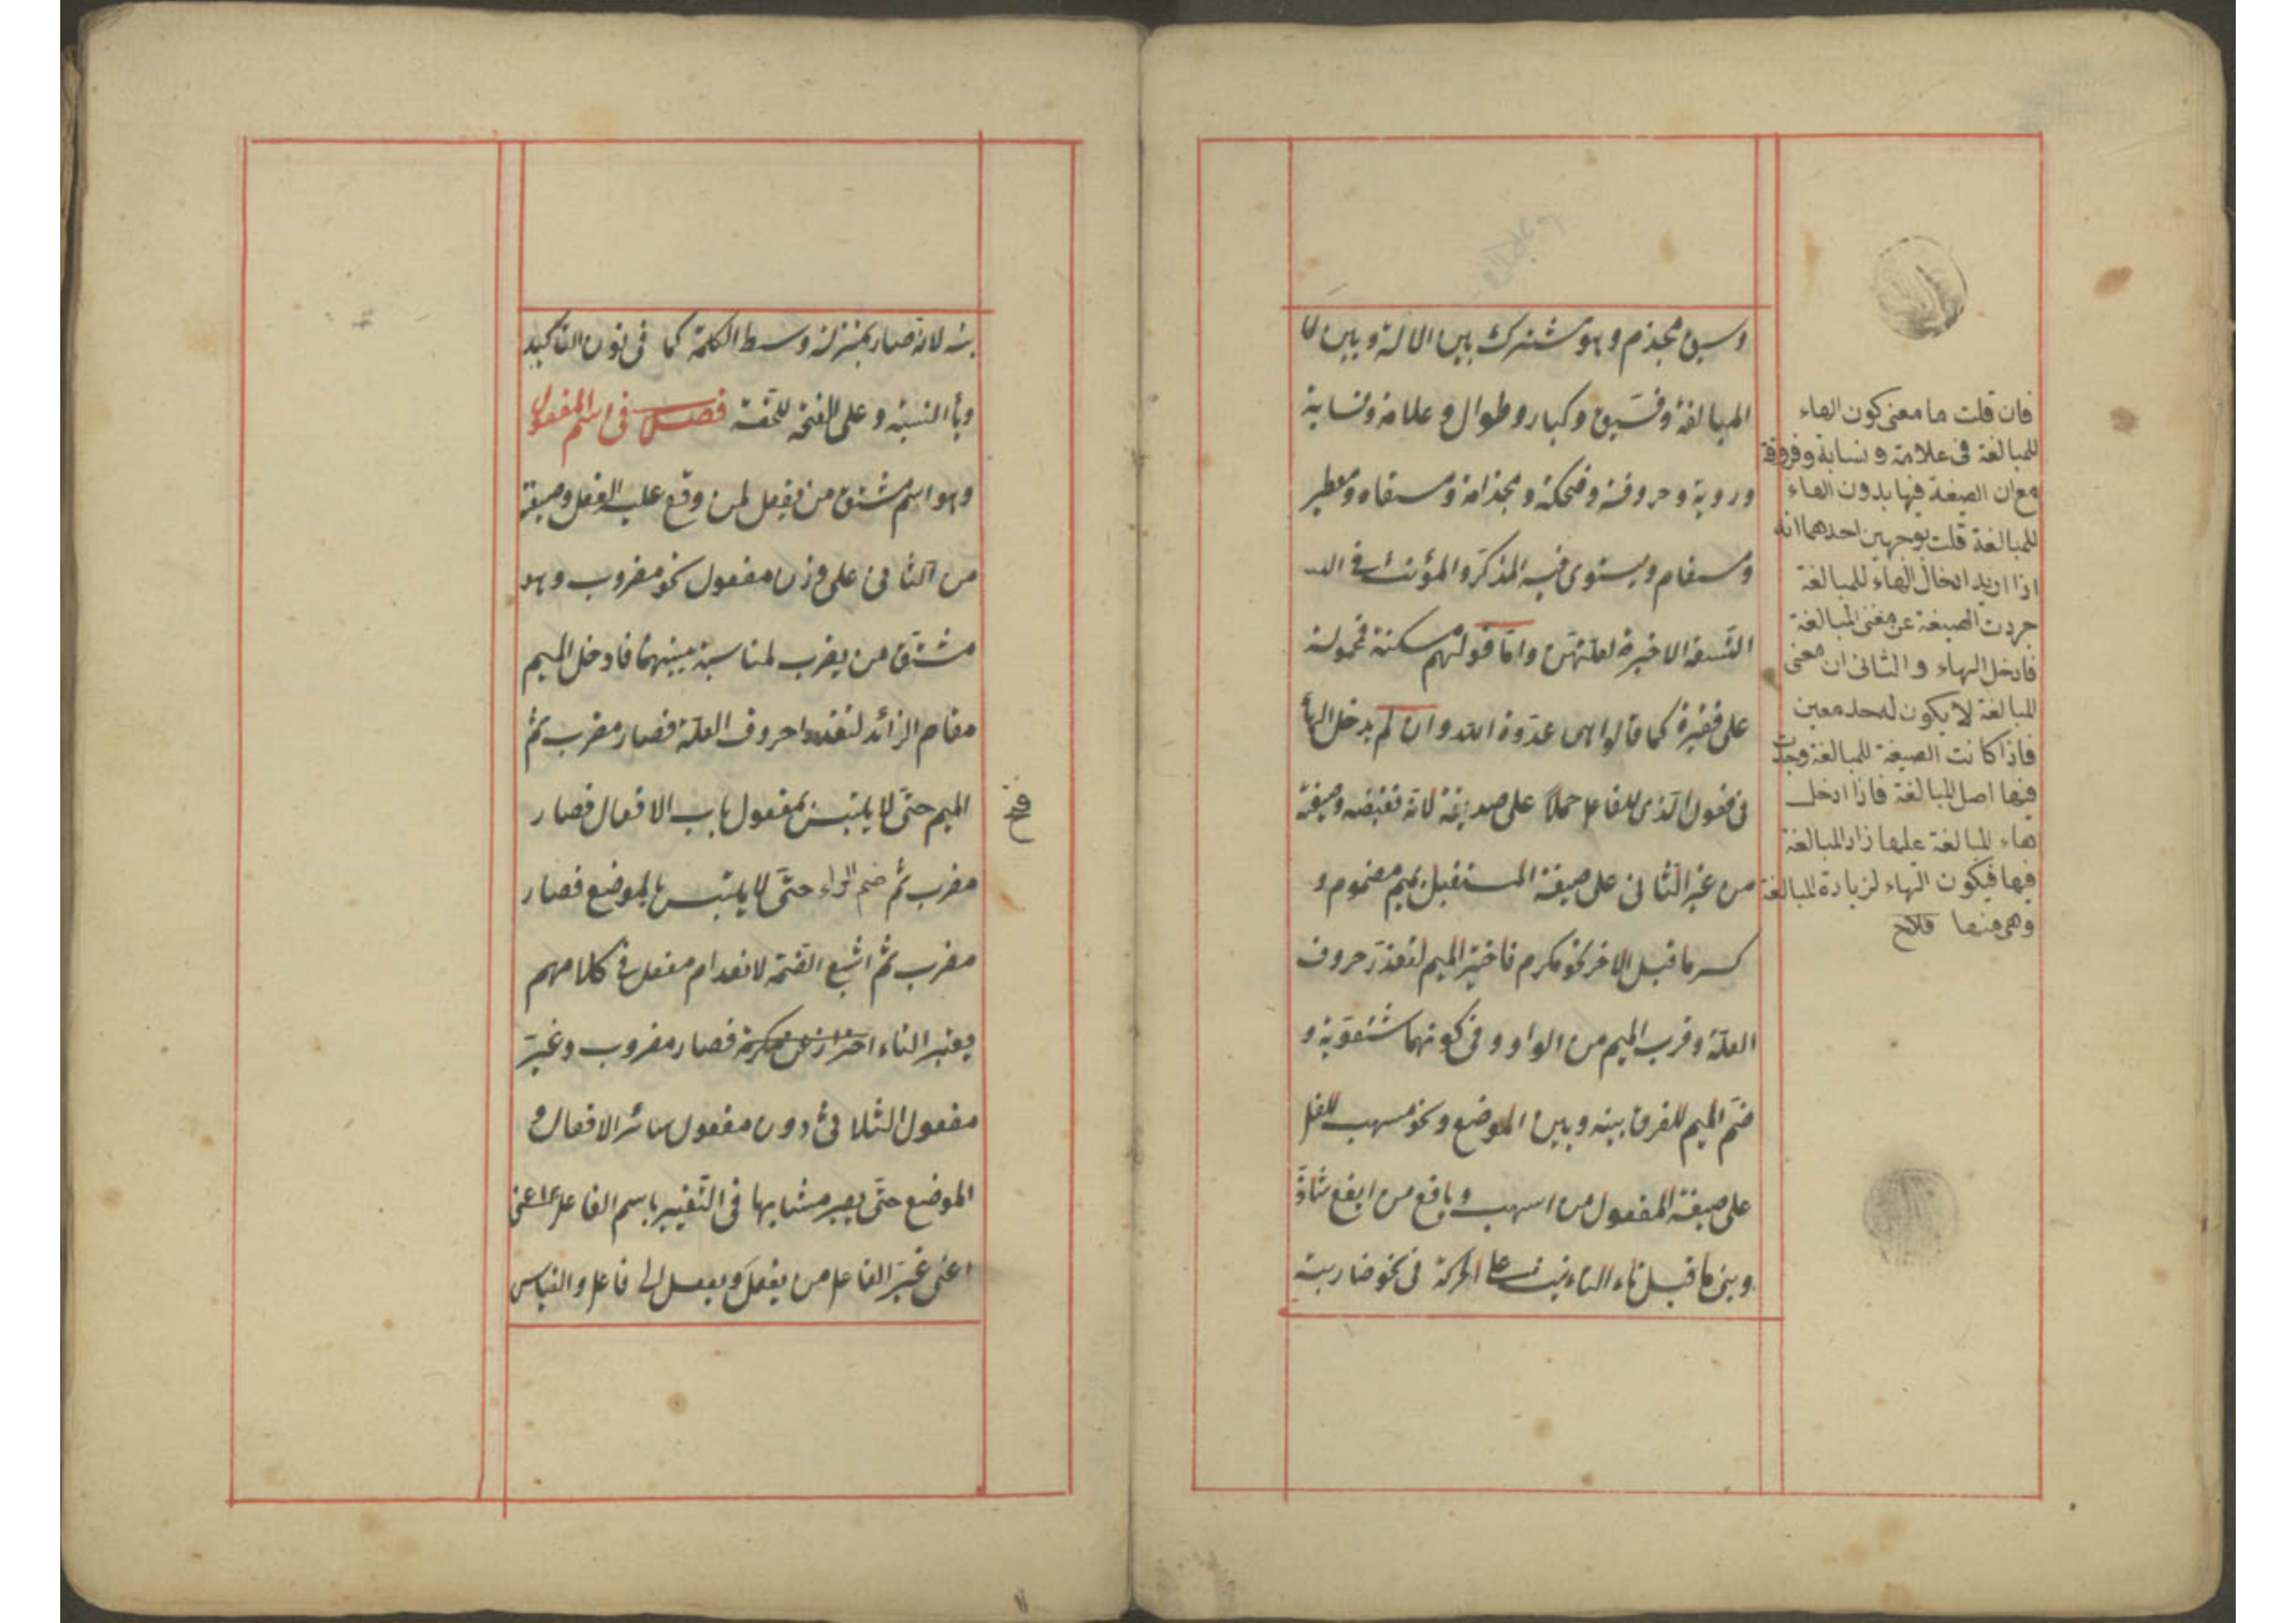 وسيف مجذم وهو مشترك بين الالة وبين
المبالغة وفسيق وكبار وطوال وعلامة ونسابة
وروية وفروقة وضحكة ومجذامة ومسقام ومعطير
ومسقام ويستوى فيه المذكر والمؤنث فى
التسعة الاخيرة لعلتهن واما قولهم مسكينة فمحمولة
على فقيرة كما قالوا هى عدوة الله وان لم يدخل الهاء
فى فعول الذى للفاعل حملا على صديقة لانه نقيضه وصيغته
من غير الثلاثى على صيغة المستقبل بميم مضموم و
كسر ما قبل الاخر نحو مكرم فاختير الميم لتعذر حروف
العلة وقرب الميم من الواو فى كونهما شفوية و
ضم الميم للفرق بينه وبين الموضع ونحو مسهب للفاعل
على صيغة المفعول من اسهب ويافع من ايفع شاذ
وبنى ما قبل تاء التانيث على الحركة فى نحو ضاربة
فان قلت ما معنى كون الهاء
للمبالغة فى علامة ونسابة وفروقة
مع ان الصيغة فيها بدون الهاء
للمبالغة قلت بوجهين احدهما انه
اذا اريد ادخال الهاء للمبالغة
جردت الصيغة عن معنى المبالغة
فادخل الهاء والثانى ان معنى
المبالغة لا يكون له حد معين
فاذا كانت الصيغة للمبالغة وجدت
فيها اصل المبالغة فاذا ادخل
هاء المبالغة عليها زاد المبالغة
فيها فيكون الهاء لزيادة المبالغة
وهى منها فلاح
لانه صار بمنزلة وسط الكلمة كما فى نون التاكيد
وياء النسبة وعلى الفتحة للخفة فصل فى اسم المفعول
وهو اسم مشتق من يفعل لمن وقع عليه الفعل وصيغته
من الثلاثى على وزن مفعول نحو مضروب وهو
مشتق من يضرب لمناسبة بينهما فادخل الميم
مقام الزائد لتعذر حروف العلة فصار مضرب ثم
فتح
الميم حتى لا يلتبس بمفعول باب الافعال فصار
مضرب ثم ضم الراء حتى لا يلتبس بالموضع فصار
مضرب ثم اشبع الضمة لانعدام مفعل فى كلامهم
بغير التاء احترازا عن مكرمة فصار مضروب وغير
مفعول الثلاثى دون مفعول سائر الافعال و
الموضع حتى يصير مشابها فى التغيير باسم الفاعل اعنى
اعنى غير الفاعل من يفعل ويفعل الى فاعل والقياس